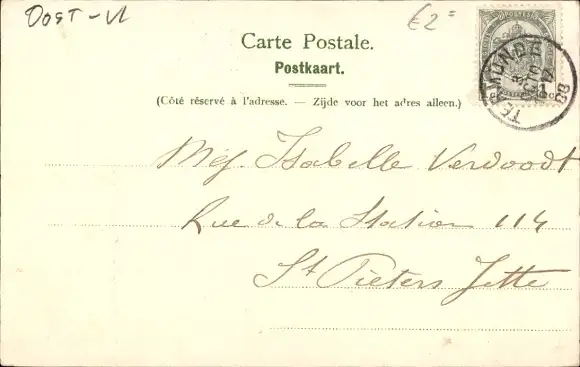 Oost-Vl
€2=
Carte Postale.
Postkaart.
(Côté réservé à l'adresse. — Zijde voor het adres alleen.)
TERMONDE
Mej. Isabelle Verdoodt
Rue de la Station 114
St Pieters Jette